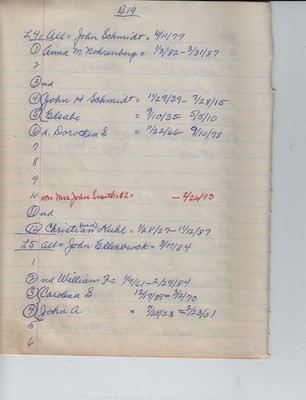 B19
L4 = All = John Schmidt = 4/11/79
① Anna M Nohrenberg = 1/3/82 - 3/31/87
2
③ nd
④ John H Schmidt = 11/29/39 - 7/28/15
⑤ Elsabe = 9/10/35 5/5/10
⑥ d. Dorothea S = 11/22/66 9/10/78
7
8
9
10 Mrs John Smith = 82 = - 2/26/93
① nd
⑫ Christian Kuhl = 1/28/27 - 11/12/87
L5 All = John Ellerbrock = 3/17/84
1
② nd William F = 1/9/61 - 2/29/84
③ Carolena S 12/17/39 = 3/4/70
④ John A = 7/28/23 = 2/23/01
5
6